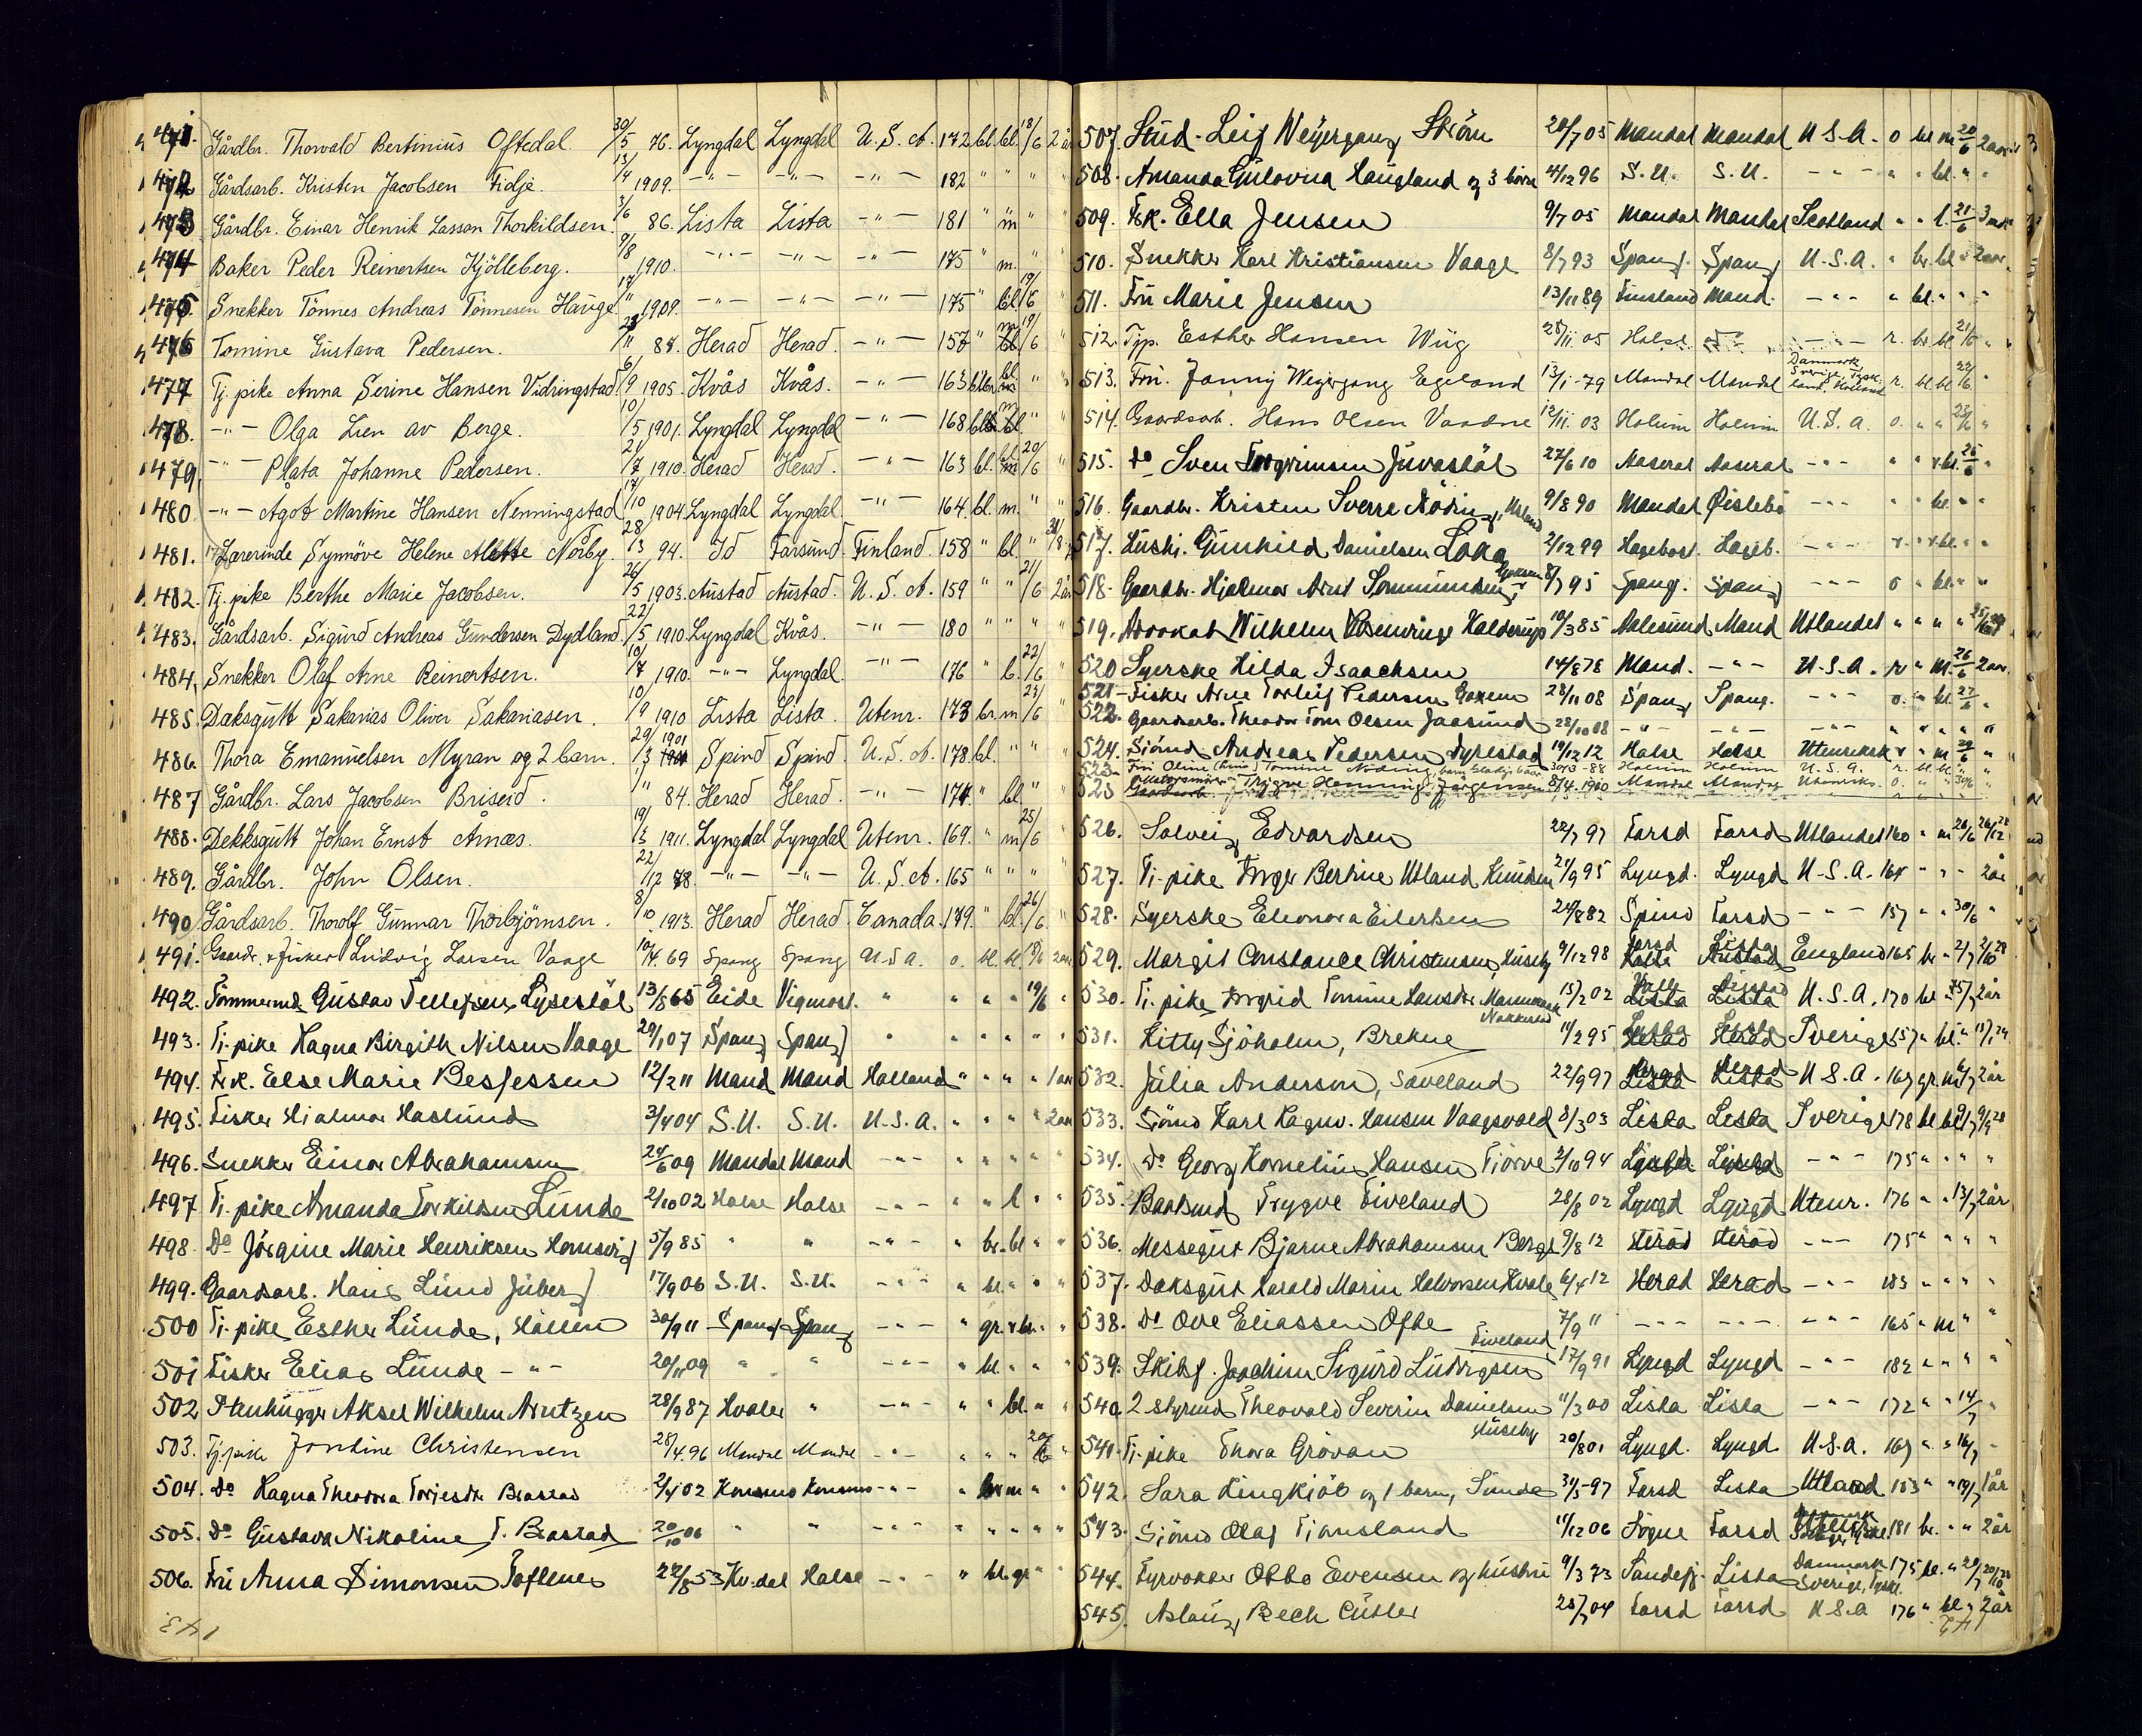 471. Gårdbr. Thorvald Bertinius Oftedal 30/5 76. Lyngdal Lyngdal U.S.A. 172 bl. bl. 18/6 2 år
472 Gårdsarb. Kristen Jacobsen Fidje. 13/4 1909. -"- -"- -"- 182 " " " "
473 Gårdbr. Einar Henrik Lassan Thorkildsen. 3/6 86. Lista Lista -"- 181 " m " "
474 Baker Peder Reinertsen Kjölleberg. 9/8 1910. -"- -"- -"- 175 " m. " "
475. Snekker Tönnes Andreas Tönnesen Hauge. 1909. -"- -"- -"- 175 " bl. 19/6 "
476 Tomine Gustava Pedersen. 23/11 88. Herad Herad. -"- 157 " m 19/6 "
477 Tj. pike Anna Serine Hansen Vidringstad. 6/9 1905. Kvås Kvås. -"- 163 bl. " "
478. -"- Olga Lien av Berge. 10/5 1901. Lyngdal Lyngdal -"- 168 bl " "
479. -"- Plata Johanne Pedersen. 21/7 1910. Herad Herad. -"- 163 bl. 20/6 "
480 -"- Ågot Martine Hansen Nenningstad 17/10 1904. Lyngdal Lyngdal -"- 164. bl. m. " "
481. Lærerinde Synnöve Helene Alette Nørby. 28/3 94. Id Farsund. Finland. 158 " bl. "
482. Tj. pike Berthe Marie Jacobsen. 26/5 1903. Austad Austad. U.S.A. 159 " " 21/6 2 år
483. Gårdsarb. Sigurd Andreas Gundersen Dydland. 22/5 1910. Lyngdal Kvås. -"- 180 " " " "
484. Snekker Olaf Arne Reinertsen. 10/7 1910. -"- Lyngdal. -"- 176 " b. 22/6 "
485. Daksgutt Sakarias Oliver Sakariasen. 10/9 1910 Lista Lista. Utenr. 173 br. m. 23/6 "
486. Thora Emanuelsen Myran og 2 barn. 29/3 1901 Spind Spind. U.S.A. 178. bl. " " "
487 Gårdbr. Lars Jacobsen Briseid. 84. Herad Herad. -"- 174. " bl. " "
488. Dekksgutt Johan Ernst Årnæs. 19/3 1911. Lyngdal Lyngdal Utenr. 169. " m 25/6 "
489. Gårdbr. John Olsen. 22/12 88. -"- -"- U.S.A. 165 " " " "
490 Gårdsarb. Thorolf Gunnar Thorbjörnsen. 8/10 1913. Herad Herad. Canada. 179. " bl. 26/6 "
491. Gaardr. & fisker Ludvig Larsen Vaage 10/4 69 Spang Spang U.S.A. o. bl. bl. 2 aar
492. Tömmermd. Gustav Tellefsen, Lysestöl 13/8 65 Eide Vigmost. " " " " 19/6 "
493. Tj. pike Ragna Birgith Nilsen Vaage 29/1 07 Spang Spang " " " " " "
494. Frk. Else Marie Besfessen 12/2 11 Mand Mand Holland " " " " 1 aar
495. Fisker Hjalmar Haslund 3/4 04 S.U. S.U. U.S.A. " " " " 2 aar
496. Snekker Einar Abrahamsen 24/6 09 Mandal Mand -"- " " " " "
497. Tj. pike Amanda Torkildsen Lunde 2/10 02 Halse Halse -"- " " l " "
498. Do Jörgine Marie Henriksen Homsvig 5/9 85 " " -"- " br. bl " "
499. Gaardsarb. Hans Lund Juberg 17/9 06 S.U. S.U. -"- " bl. " " "
500 Tj. pike Esther Lunde, Hållen 30/9 11 Spang Spang -"- " gr. " "
501 Fisker Elias Lunde -"- 20/11 09 " " -"- " bl. " " "
502 Stenhugger Aksel Wilhelm Arntzen 28/9 87 Hvaler " -"- " " bl. " "
503. Tj. pike Jontine Christensen 28/4.96 Mandal Mandal -"- " " " 20/6 "
504. Do Ragna Theodora Torjesdtr Brastad 2/4 02 Konsmo Konsmo -"- " br m " "
505. Do Gustava Nikoline T. Brastad 20/10 06 " " -"- " " " " "
506. Fru Anna Simonsen Toftenes 22/8 53 Kv.dal Halse -"- " bl. gr " "
143
507. Stud. Leif Weyergang Ström 20/7 05 Mandal Mandal U.S.A. o bl m 20/6 2 aar
508. Amanda Gulovna Haugland og 3 börn 4/12 96 S.U. S.U. -"- " " bl. " "
509. Frk. Ella Jensen 9/7 05 Mandal Mandal Scotland " " l. 21/6 3 mdr
510. Snekker Karl Kristiansen Vaage 8/7 93 Spang. Spang U.S.A. " br. bl " 2 aar
511. Fru Marie Jensen 13/11 89 Finsland Mand. -"- " bl " " "
512. Typ. Esther Hansen Wiig 28/11.05 Halse Do -"- r. br. bl 21/6 "
513. Fru. Fanny Weyergang Egeland 13/1-79 Mandal Mandal Danmark Sverige, Tyskland, Holland r. bl bl 22/6 "
514. Gaardsarb. Hans Olsen Vaadne 12/11.03 Holum Holum U.S.A. o. " " 23/6 "
515. Do Sven Torgrimsen Juvastöl 27/6 10 Aaseral Aaseral -"- " " bl. 25/6 "
516. Gaardbr. Kristen Sverre Nöding, Usland 9/8 90 Mandal Øislebö -"- " " bl. " "
517. Hushj. Gunhild Danielsen Loka 2/12 99 Hægebost. Hægeb. -"- r. " bl. " "
518. Gaardbr. Hjalmar Arnt Sommundsen, Gaksem 8/7 95 Spang. Spang -"- o " bl. " "
519. Advokat Wilhelm Halderup 10/3 85 Aalesund Mand Utlandet " " " "
520 Syerske Hilda Isaachsen 14/8 78 Mand. -"- U.S.A. r " m. 26/6 2 aar
521 Fisker Arne Torleif Pedersen Goksem 28/11 08 Spang Spang. -"- o. " bl. 27/6 "
522. Gaardsarb. Theodor Tom Olsen Jaasund 28/10 08 -"- -"- -"- " " " " "
524. Sjömd Andreas Pedersen Dyrestad 19/12 12 Halse Halse Utenriksk " m 29/6 "
523. Fru Oline Tomine Nöding 88 Holum Holum U.S.A. r. bl. bl. " "
525 Thygve Henning Jörgensen 8/4.1900 Mandal Mandal Utenriks. o. " " 30/6 "
526. Solveig Edvardsen 22/7 97 Farsd Farsd Utlandet 160 " m 26/6 26/12 28
527. Tj. pike Inger Bertine Utland Knudsen 21/9 95 Lyngd. Lyngd U.S.A. 164 " " " 2 år
528. Syerske Eleonora Eilertsen 24/8 82 Spind Farsd -"- 157 " " 30/6 "
529. Margit Constance Christensen, Huseby 9/12 98 Farsd Lista England 165 br " 2/7 2/10 28
530. Tj. pike Ingrid Tomine Larsdtr Mannevak Nakkestad 15/2 02 Halse Austad U.S.A. 170 bl " 5/7 2 år
531. Kitty Sjöholm, Brekne 11/2 95 Lista Lista Sverige 157 " bl. "
532. Julia Anderson, Saveland 22/9 97 Herad Herad U.S.A. 169 gr. m 6/7 2 år
533. Sjömd Karl Ragnv. Hansen Vaagsvold 8/3 03 Lista Lista Sverige 178 bl bl 9/7 9/9 28
534. Do Georg Kornelius Hansen Tjörve 2/10 94 -"- 175 " " " "
535. Baatsmd Trygve Fiveland 28/8 02 Lyngd Lyngd Utenr. 176 " " 13/7 2 år
536. Messegut Bjarne Abrahamsen Berge 9/8 12 Herad Herad -"- 175 " " " "
537. Daksgut Harald Marin Halvorsen Kvale 6/4 12 Herad Herad -"- 183 " " " "
538. Do Ove Eliassen Ofte 7/9 11 -"- -"- -"- 165 " m " "
539. Skibsf. Joachim Sigurd Ludvigsen Fiveland 17/9 91 Lyngd Lyngd -"- 182 " " " "
540. 2 styrmd Theovald Severin Danielsen Huseby 11/3 00 Lista Lista -"- 172 " " 14/7 "
541. Tj. pike Thora Grövan 20/8 01 Lyngd. Lyngd. U.S.A. 169 " " 16/7 "
542. Sara Ringkjöb og 1 barn, Sunde 31/5-97 Farsd Lista Utland 153 " " 19/7 1 år
543. Sjömd Olaf Tjomsland 11/12 06 Sögne Farsd 181 br. " " 2 år
544. Fyrvokter Otto Evensen og hustru 9/3 73 Sandefj. Lista Danmark Sverige, Tyskl. 175 bl. " 20/7 20/10 28
545. Aslaug Bech Cutler 28/7 04 Farsd Farsd U.S.A 176 " bl " 2 år
143